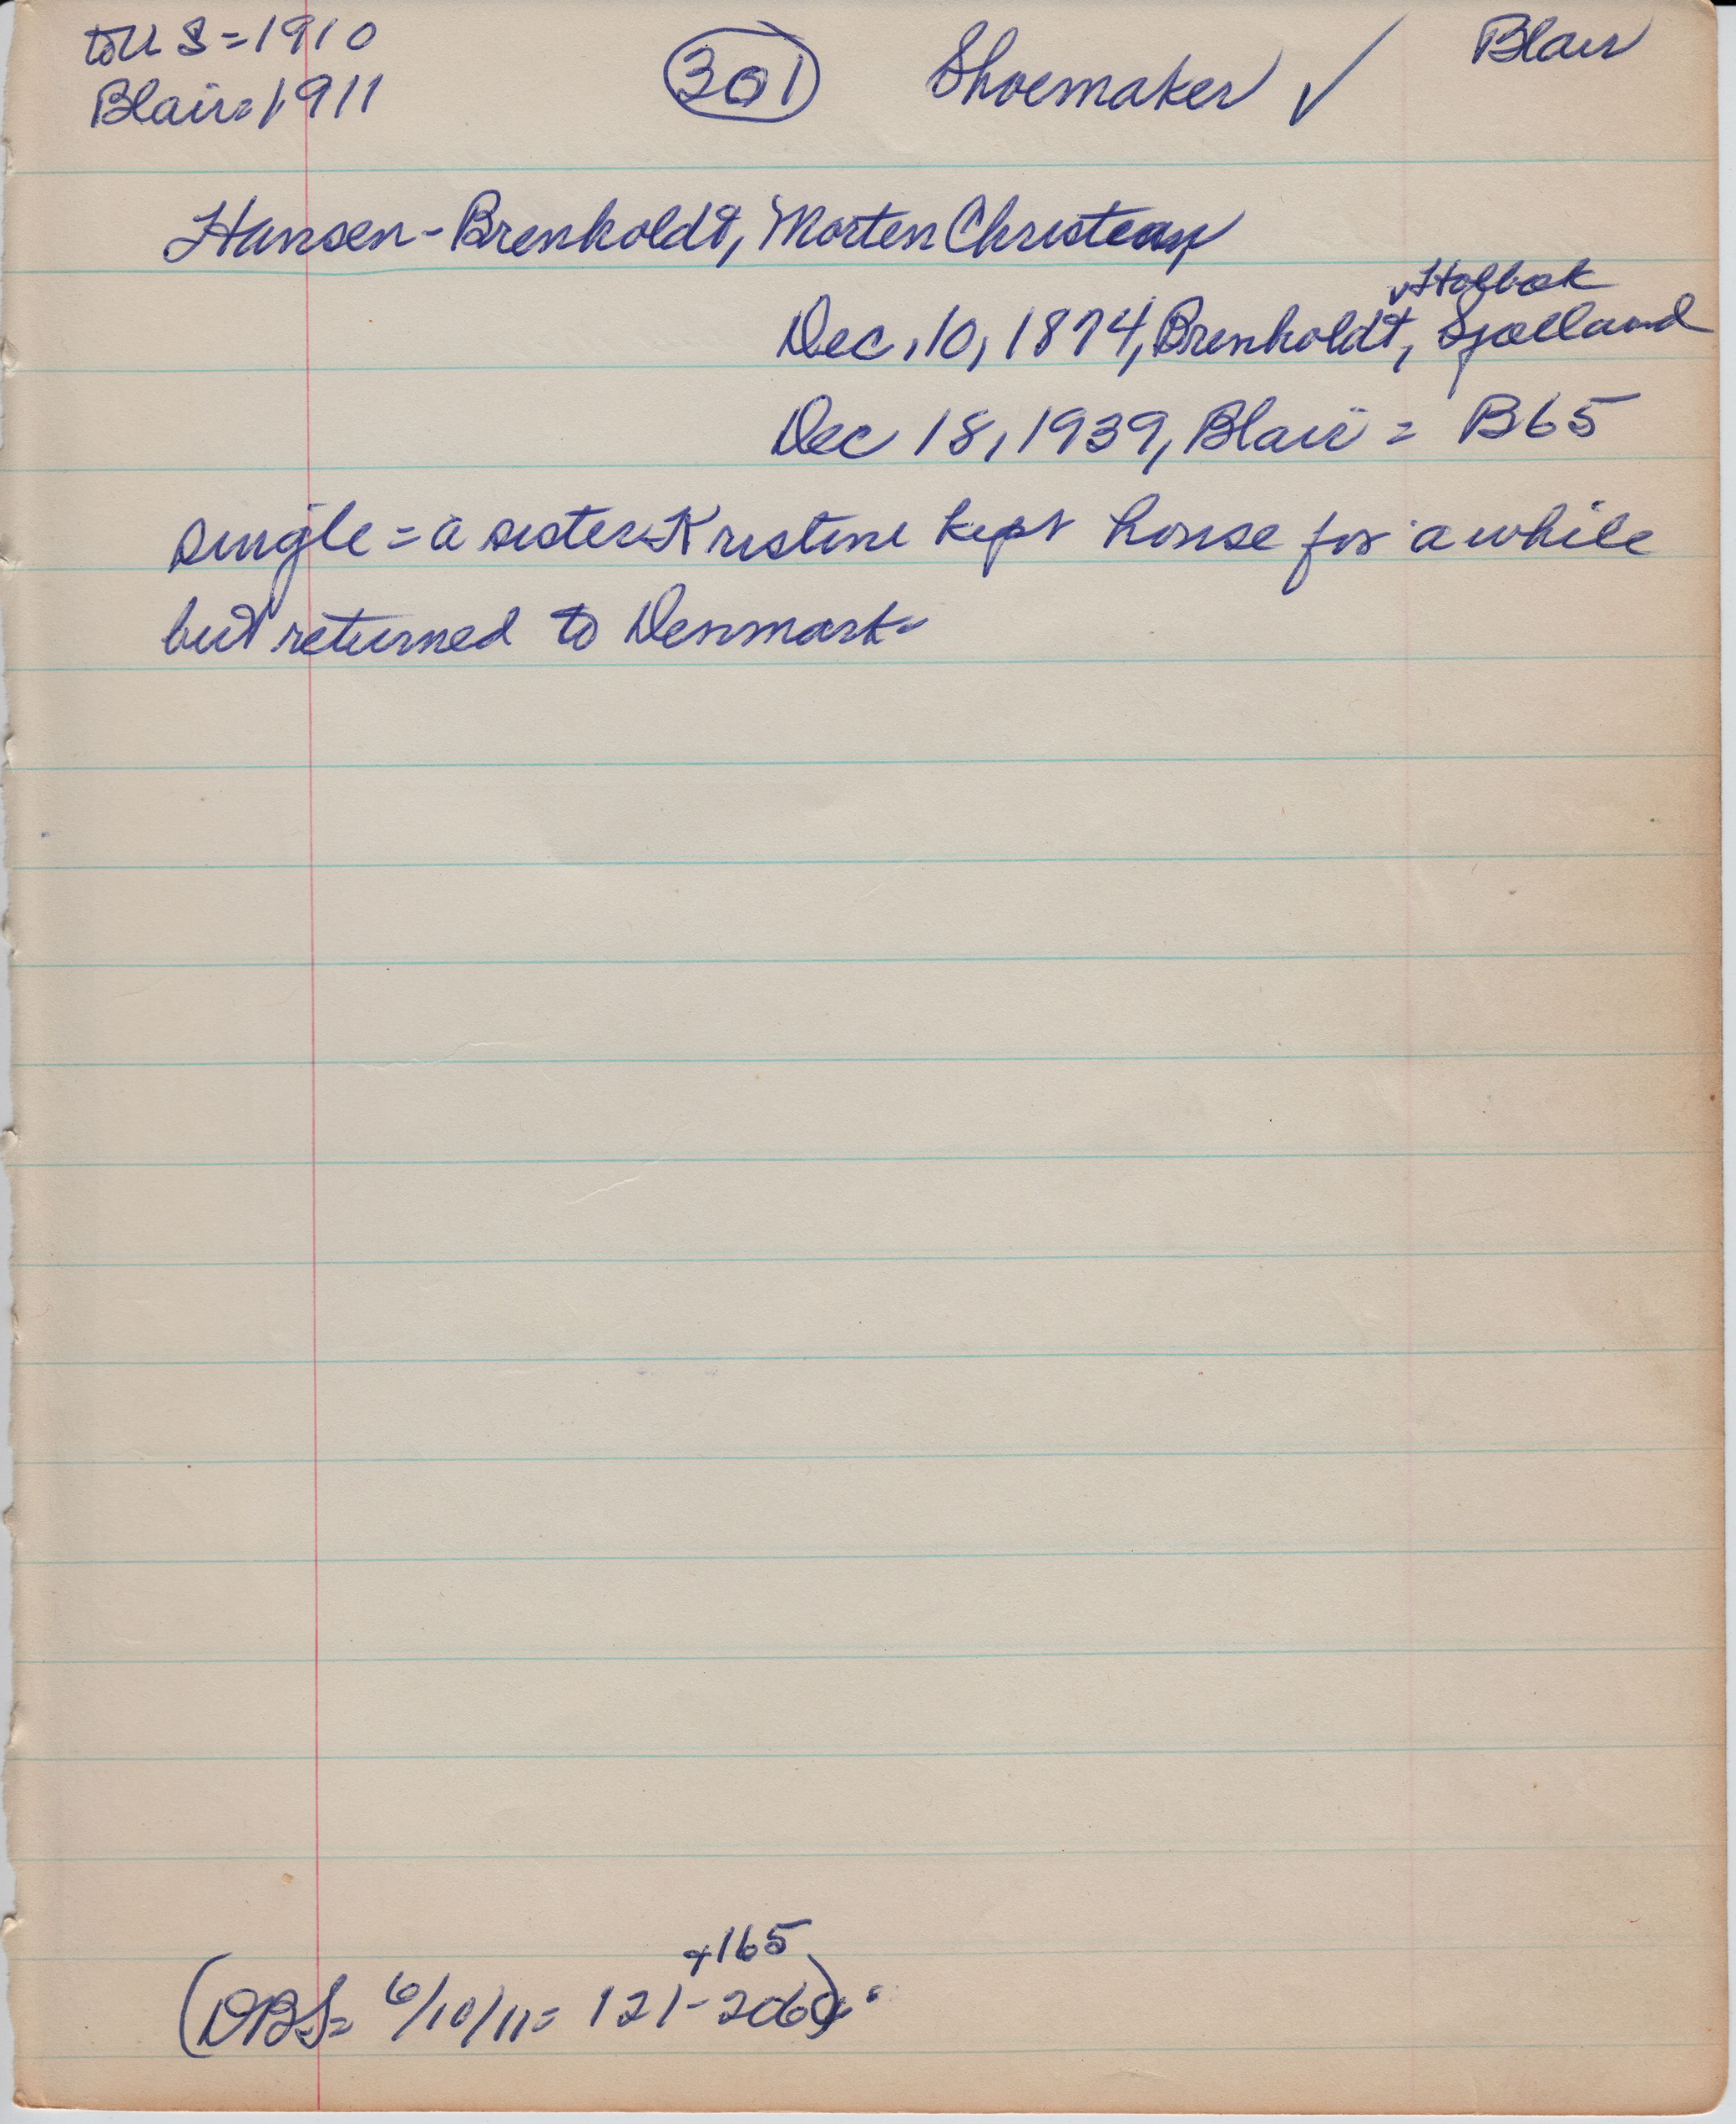 to U S = 1910
Blair = 1911
301
Shoemaker ✓
Blair
Hansen-Brenholdt, Morten Christean
Holbak
Dec. 10, 1874, Brenholdt, Sjælland
Dec 18, 1939, Blair = B65
single = a sister Kristine kept house for a while
but returned to Denmark.
+165
(DBS = 6/10/11 = 121-206)